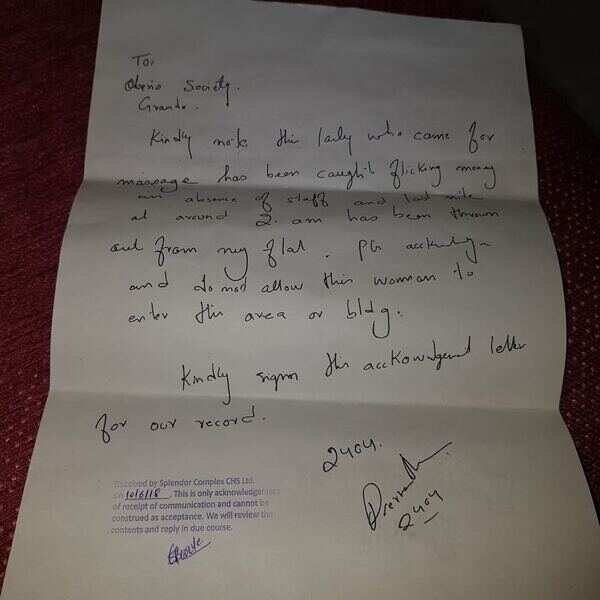 To,
Oberio Society.
Grande.
Kindly note this lady who came for
massage has been caught flicking money
in absence of staff and last nite
at around 2 am has been thrown
out from my flat. Plz
and do not allow this woman to
enter this area or bldg.
Kindly signn this acckowdgement letter
for our record.
2404.
2404
Received by Splendor Complex CHS Ltd.
on 10/6/18. This is only acknowledgement
of receipt of communication and cannot be
construed as acceptance. We will review the
contents and reply in due course.